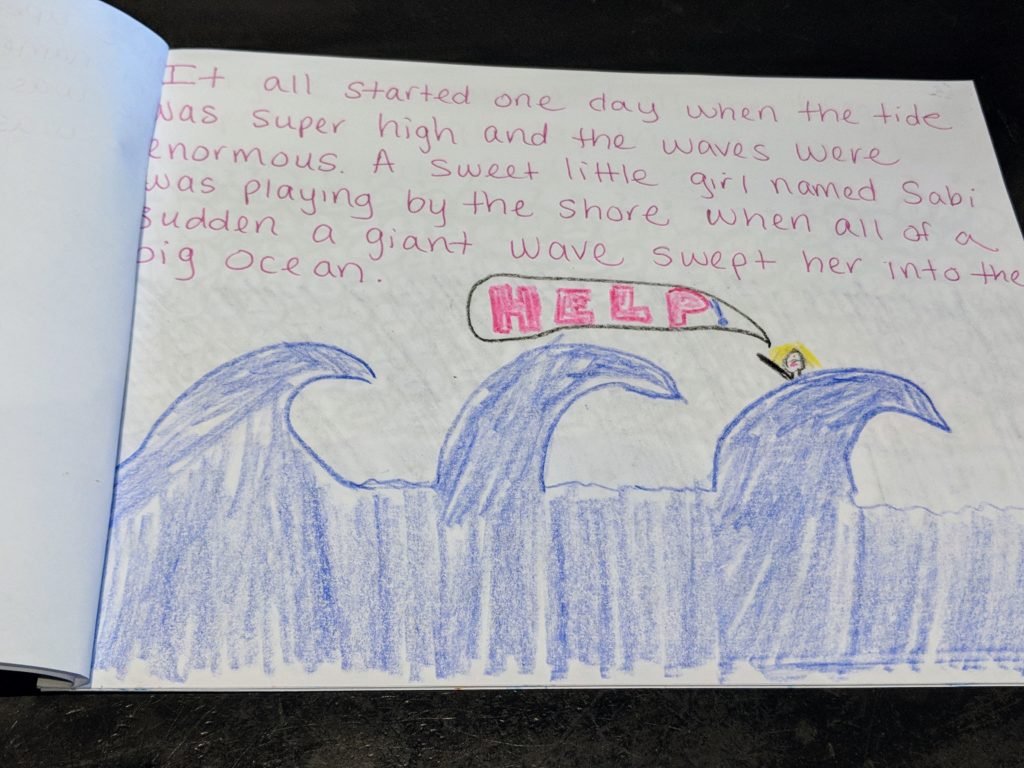 It all started one day when the tide
was super high and the waves were
enormous. A sweet little girl named Sabi
was playing by the shore when all of a
sudden a giant wave swept her into the
big ocean.
HELP!